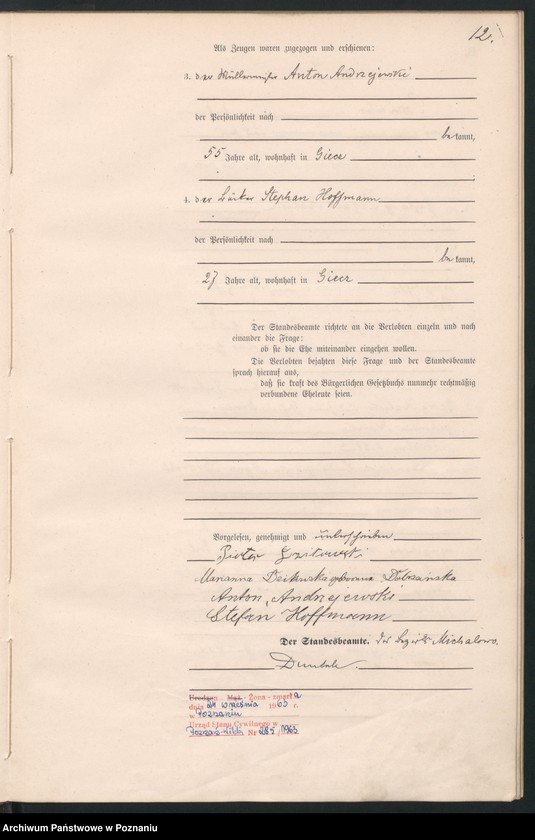 12.
Als Zeugen waren zugezogen und erschienen:
3. der Müllermeister Anton Andrzejewski
der Persönlichkeit nach
bekannt,
55 Jahre alt, wohnhaft in Giecz
4. der Stephan Hoffmann
der Persönlichkeit nach
bekannt,
27 Jahre alt, wohnhaft in Giecz
Der Standesbeamte richtete an die Verlobten einzeln und nach
einander die Frage:
ob sie die Ehe miteinander eingehen wollen.
Die Verlobten bejahten diese Frage und der Standesbeamte
sprach hierauf aus,
daß sie kraft des Bürgerlichen Gesetzbuchs nunmehr rechtmäßig
verbundene Eheleute seien.
Vorgelesen, genehmigt und unterschrieben
Marianna geborene
Anton Andrzejewski
Stefan Hoffmann
Der Standesbeamte. des Bezirks Michalowo.
Urodzon Mąż - Żona - zmarła
dnia września 1965 r.
w Poznaniu
Urząd Stanu Cywilnego w
Nr 1965
Archiwum Państwowe w Poznaniu